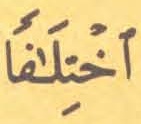 ٱخْتِلَٰفًا